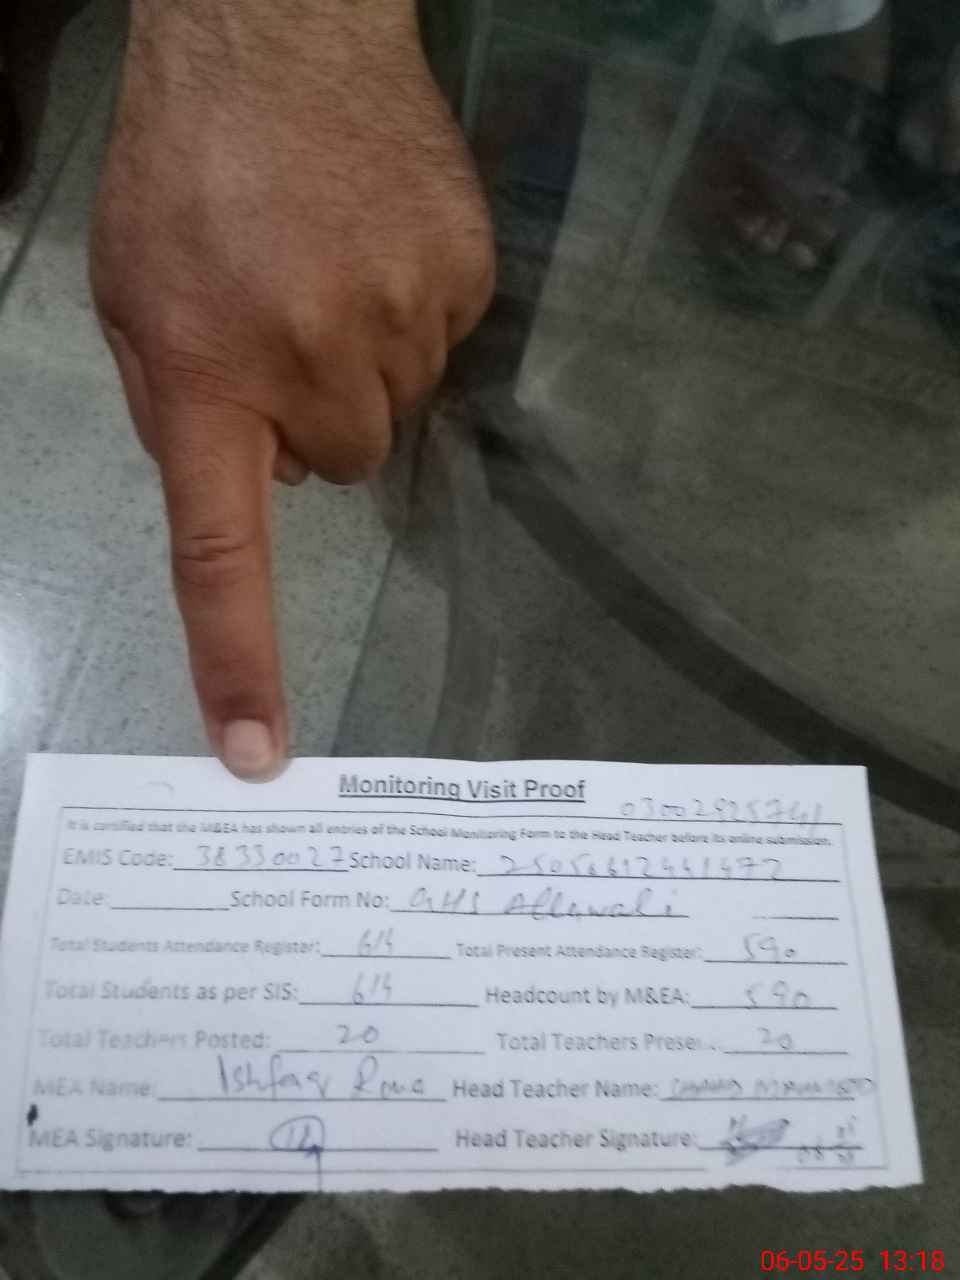 Monitoring Visit Proof
03002925741
It is certified that the M&EA has shown all entries of the School Monitoring Form to the Head Teacher before its online submission.
EMIS Code: 38330027 School Name: 25056612441472
Date: School Form No: GHS Allawali
Total Students Attendance Register: 614 Total Present Attendance Register: 590
Total Students as per SIS: 614 Headcount by M&EA: 590
Total Teachers Posted: 20 Total Teachers Present: 20
MEA Name: Ishfaq Head Teacher Name:
MEA Signature: Head Teacher Signature:
06-05-25 13:18